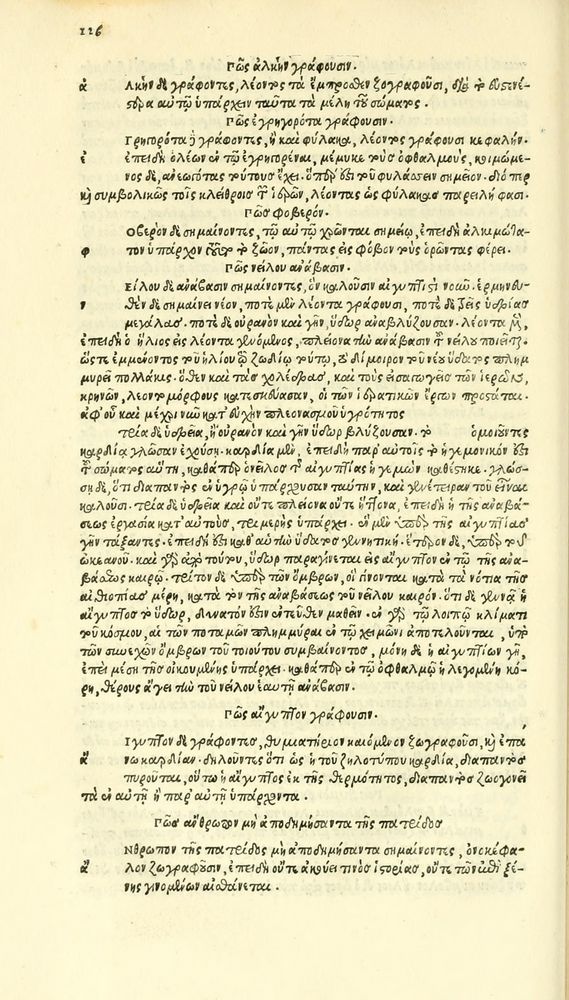 126
Πῶς ἀλκὴν γράφουσιν.
ἀ Λκὴν δὲ γράφοντες, λέοντος τὰ ἔμπροσθεν ζογραφοῦσι, διὰ τὸ εὐσθενέ-
στερα αὐτῷ ὑπάρχειν ταῦτα τὰ μέλη τοῦ σώματος.
Πῶς ἐγρηγορότα γράφουσιν.
Γρηγορότα γράφοντες, ἢ καὶ φύλακα, λέοντος γράφουσι κεφαλήν.
ε ἐπειδὴ ὁ λέων ἐν τῷ ἐγρηγορέναι, μέμυκε τοὺς ὀφθαλμοὺς, κοιμώμε-
νος δὲ, ἀνεωγότας τούτους ἔχει. ὅπερ ἐστὶ τοῦ φυλάσσειν σημεῖον. διόπερ
καὶ συμβολικῶς τοῖς κλείθροις τῶν ἱερῶν, λέοντας ὡς φύλακας παρειλήφασι.
Πῶς φοβερόν.
Οβερὸν δὲ σημαίνοντες, τῷ αὐτῷ χρῶνται σημείῳ, ἐπειδὴ ἀλκιμώτα-
φ τον ὑπάρχον τοῦτο τὸ ζῶον, πάντας εἰς φόβον τοὺς ὁρῶντας φέρει.
Πῶς νείλου ἀνάβασιν.
Είλου δὲ ἀνάβασιν σημαίνοντες, ὃν καλοῦσιν αἰγυπτιστὶ νοῶ. ἑρμηνευ-
ν θὲν δὲ σημαίνει νέον, ποτὲ μὲν λέοντα γράφουσι, ποτὲ δὲ τρεῖς ὑδρίας
μεγάλας. ποτὲ δὲ οὐρανὸν καὶ γῆν, ὕδωρ ἀναβλύζουσαν. λέοντα μὲν,
ἐπειδὴ ὁ ἥλιος εἰς λέοντα γενόμενος, πλείονα τὴν ἀνάβασιν τοῦ νείλου ποιεῖται.
ὥστε ἐμμένοντος τοῦ ἡλίου τῷ ζωδίῳ τούτῳ, τὸ δίμοιρον τοῦ νέου ὕδατος πλημ
μυρεῖ πολλάκις. ὅθεν καὶ τὰς χολέδρας, καὶ τοὺς εἰσαγωγεῖς τῶν ἱερῶν
κρηνῶν, λεοντομόρφους κατεσκεύασαν, οἱ τῶν ἱερατικῶν ἔργων προστάται.
ἀφ' οὗ καὶ μέχρι νῦν κατ' εὐχὴν πλεονασμοῦ ὑγρότητος
τρία ὑδρεῖα, ἢ οὐρανὸν καὶ γῆν ὕδωρ βλύζουσαν. τὸ ὁμοιοῦντες
καρδίᾳ γλῶσαν ἐχούσῃ. καρδίᾳ μὲν, ἐπειδὴ παρ' αὐτοῖς τὸ ἡγεμονικόν ἐστι
τοῦ σώματος αὕτη, καθάπερ ὁ νεῖλος τῆς αἰγυπτίας ἡγεμὼν καθέστηκε. γλώσ-
σῃ δὲ, ὅτι διαπαντὸς ἐν ὑγρῷ ὑπάρχουσαν ταύτην, καὶ γενέτειραν τοῦ εἶναι
καλοῦσι. τρία δὲ ὑδρεῖα καὶ οὔτε πλείονα οὔτε ἥττονα, ἐπειδὴ ἡ τῆς ἀναβά-
σεως ἐργασία κατ' αὐτοὺς, τριμερὴς ὑπάρχει. ἓν μὲν ὑπὲρ τῆς αἰγυπτίας
γῆν τάξαντες. ἐπειδή ἐστι καθ' αὑτὴν ὕδατος γεννητική. ἕτερον δὲ, ὑπὲρ τοῦ
ὠκεανοῦ. καὶ γὰρ ἀπὸ τούτου, ὕδωρ παραγίνεται εἰς αἴγυπτον ἐν τῷ τῆς ἀνα-
βάσεως καιρῷ. τρίτον δὲ ὑπὲρ τῶν ὄμβρων, οἳ γίνονται κατὰ τὰ νότια τῆς
αἰθιοπίας μέρη, κατὰ τὸν τῆς ἀναβάσεως τοῦ νείλου καιρόν. ὅτι δὲ γεννᾷ ἡ
αἴγυπτος τὸ ὕδωρ, δυνατόν ἐστιν ἐντεῦθεν μαθεῖν. ἐν γὰρ τῷ λοιπῷ κλίματι
τοῦ κόσμου, αἱ τῶν ποταμῶν πλημμύραι ἐν τῷ χειμῶνι ἀποτελοῦνται, ὑπὸ
τῶν συνεχῶν ὄμβρων τοῦ τοιούτου συμβαίνοντος, μόνη δὲ ἡ αἰγυπτίων γῆ,
ἐπεὶ μέση τῆς οἰκουμένης ὑπάρχει. καθάπερ ἐν τῷ ὀφθαλμῷ ἡ λεγομένη κό-
ρη, θέρους ἄγει τὴν τοῦ νείλου ἑαυτῇ ἀνάβασιν.
Πῶς αἴγυπτον γράφουσιν.
Ιγυπτον δὲ γράφοντες, θυμιατήριον καιόμενον ζωγραφοῦσι, καὶ ἐπα
ἀ νω καρδίαν. δηλοῦντες ὅτι ὡς ἡ τοῦ ζηλοτύπου καρδία, διαπαντὸς
πυροῦται, οὕτω ἡ αἴγυπτος ἐκ τῆς θερμότητος, διαπαντὸς ζωογονεῖ
τὰ ἐν αὐτῇ ἢ παρ' αὐτῇ ὑπάρχοντα.
Πῶς ἄνθρωπον μὴ ἀποδημήσαντα τῆς πατρίδος
Νθρωπον τῆς πατρίδος μὴ ἀποδημήσαντα σημαίνοντες, ὀνοκέφα-
ἀ λον ζωγραφοῦσιν, ἐπειδὴ οὔτε ἀκούει τινὸς ἱστορίας, οὔτε τῶν ἐπὶ ξέ-
νης γινομένων αἰσθάνεται.